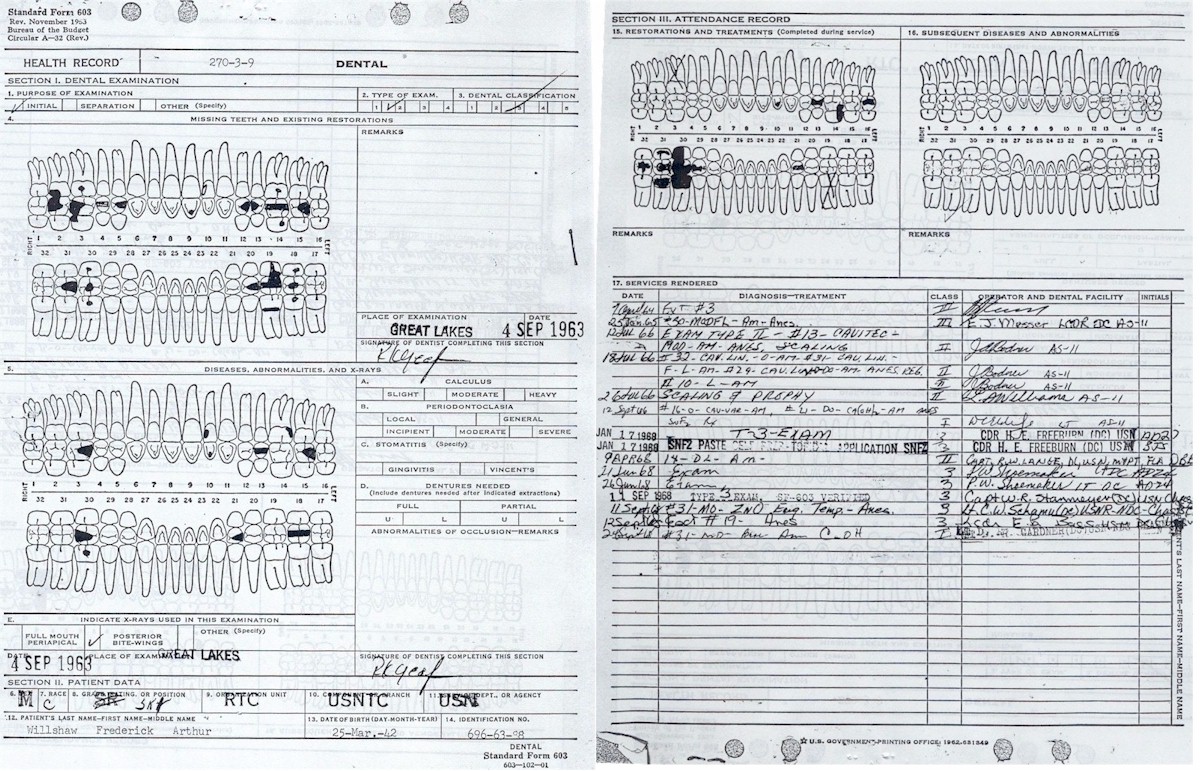 Standard Form 603
Rev. November 1963
Bureau of the Budget
Circular A—32 (Rev.)
HEALTH RECORD 270-3-9 DENTAL
SECTION I. DENTAL EXAMINATION
1. PURPOSE OF EXAMINATION 2. TYPE OF EXAM. 3. DENTAL CLASSIFICATION
INITIAL SEPARATION OTHER (Specify) 1 2 3 4 1 2 3 4 5
4. MISSING TEETH AND EXISTING RESTORATIONS
REMARKS
RIGHT 1 2 3 4 5 6 7 8 9 10 11 12 13 14 15 16 LEFT
32 31 30 29 28 27 26 25 24 23 22 21 20 19 18 17
PLACE OF EXAMINATION DATE
GREAT LAKES 4 SEP 1963
SIGNATURE OF DENTIST COMPLETING THIS SECTION
5. DISEASES, ABNORMALITIES, AND X-RAYS
A. CALCULUS
SLIGHT MODERATE HEAVY
B. PERIODONTOCLASIA
LOCAL GENERAL
INCIPIENT MODERATE SEVERE
C. STOMATITIS (Specify)
GINGIVITIS VINCENT'S
D. DENTURES NEEDED
(Include dentures needed after indicated extractions)
FULL PARTIAL
U L U L
ABNORMALITIES OF OCCLUSION—REMARKS
RIGHT 1 2 3 4 5 6 7 8 9 10 11 12 13 14 15 16 LEFT
32 31 30 29 28 27 26 25 24 23 22 21 20 19 18 17
E. INDICATE X-RAYS USED IN THIS EXAMINATION
FULL MOUTH PERIAPICAL POSTERIOR BITE-WINGS OTHER (Specify)
DATE PLACE OF EXAMINATION SIGNATURE OF DENTIST COMPLETING THIS SECTION
4 SEP 1963 GREAT LAKES
SECTION II. PATIENT DATA
6. SEX 7. RACE 8. GRADE, RATING, OR POSITION 9. ORGANIZATION UNIT 10. COMPONENT OR BRANCH 11. SERVICE, DEPT., OR AGENCY
M C SR RTC USNTC USN
12. PATIENT'S LAST NAME—FIRST NAME—MIDDLE NAME 13. DATE OF BIRTH (DAY-MONTH-YEAR) 14. IDENTIFICATION NO.
Willshaw Frederick Arthur 25-Mar.-42 696-63-98
DENTAL
Standard Form 603
603—102—01
SECTION III. ATTENDANCE RECORD
15. RESTORATIONS AND TREATMENTS (Completed during service) 16. SUBSEQUENT DISEASES AND ABNORMALITIES
RIGHT 1 2 3 4 5 6 7 8 9 10 11 12 13 14 15 16 LEFT RIGHT 1 2 3 4 5 6 7 8 9 10 11 12 13 14 15 16 LEFT
32 31 30 29 28 27 26 25 24 23 22 21 20 19 18 17 32 31 30 29 28 27 26 25 24 23 22 21 20 19 18 17
REMARKS REMARKS
17. SERVICES RENDERED
DATE DIAGNOSIS—TREATMENT CLASS OPERATOR AND DENTAL FACILITY INITIALS
Ext #3 II
#30-MODFL-Am-Anes. III E.J. Messer LCDR DC AS-11
EXAM TYPE II - #13-CAVITEC-
MOD-AM-ANES, SCALING II J Bodner AS-11
18 Jul 66 #32-CAV.LIN.-O-AM. #31-CAV.LIN.-
F-L-AM-#29-CAV.LIN-DO-AM. ANES. REG. II J Bodner AS-11
# 10-L-AM II J Bodner AS-11
26 Jul 66 SCALING & PROPHY II Williams AS-11
12 Sept 66 #16-O-CAV-VAR-AM, #21-DO-Ca(OH)2-AM anes
SnF2 Rx I LT AS-11
JAN 17 1968 T-3-EXAM 3 CDR H. E. FREEBURN (DC) USN
JAN 17 1968 SNF2 PASTE SELF PREP-TOPICAL APPLICATION SNF2 3 CDR H. E. FREEBURN (DC) USN
9 APR 68 14-DL-Am- II
21 Jun 68 Exam 3
26 Jun 68 Exam 3 P.W. Shoemaker LT DC AD24
11 SEP 1968 TYPE 3 EXAM, SF-603 VERIFIED 3 Capt W.R. Stanmeyer (DC)
11 Sept #31-MO-ZNO Eug. Temp-Anes. 3
12 Sept Ext #19-Anes 3
I GARDNER
PATIENT'S LAST NAME—FIRST NAME—MIDDLE NAME
U.S. GOVERNMENT PRINTING OFFICE: 1962-631849